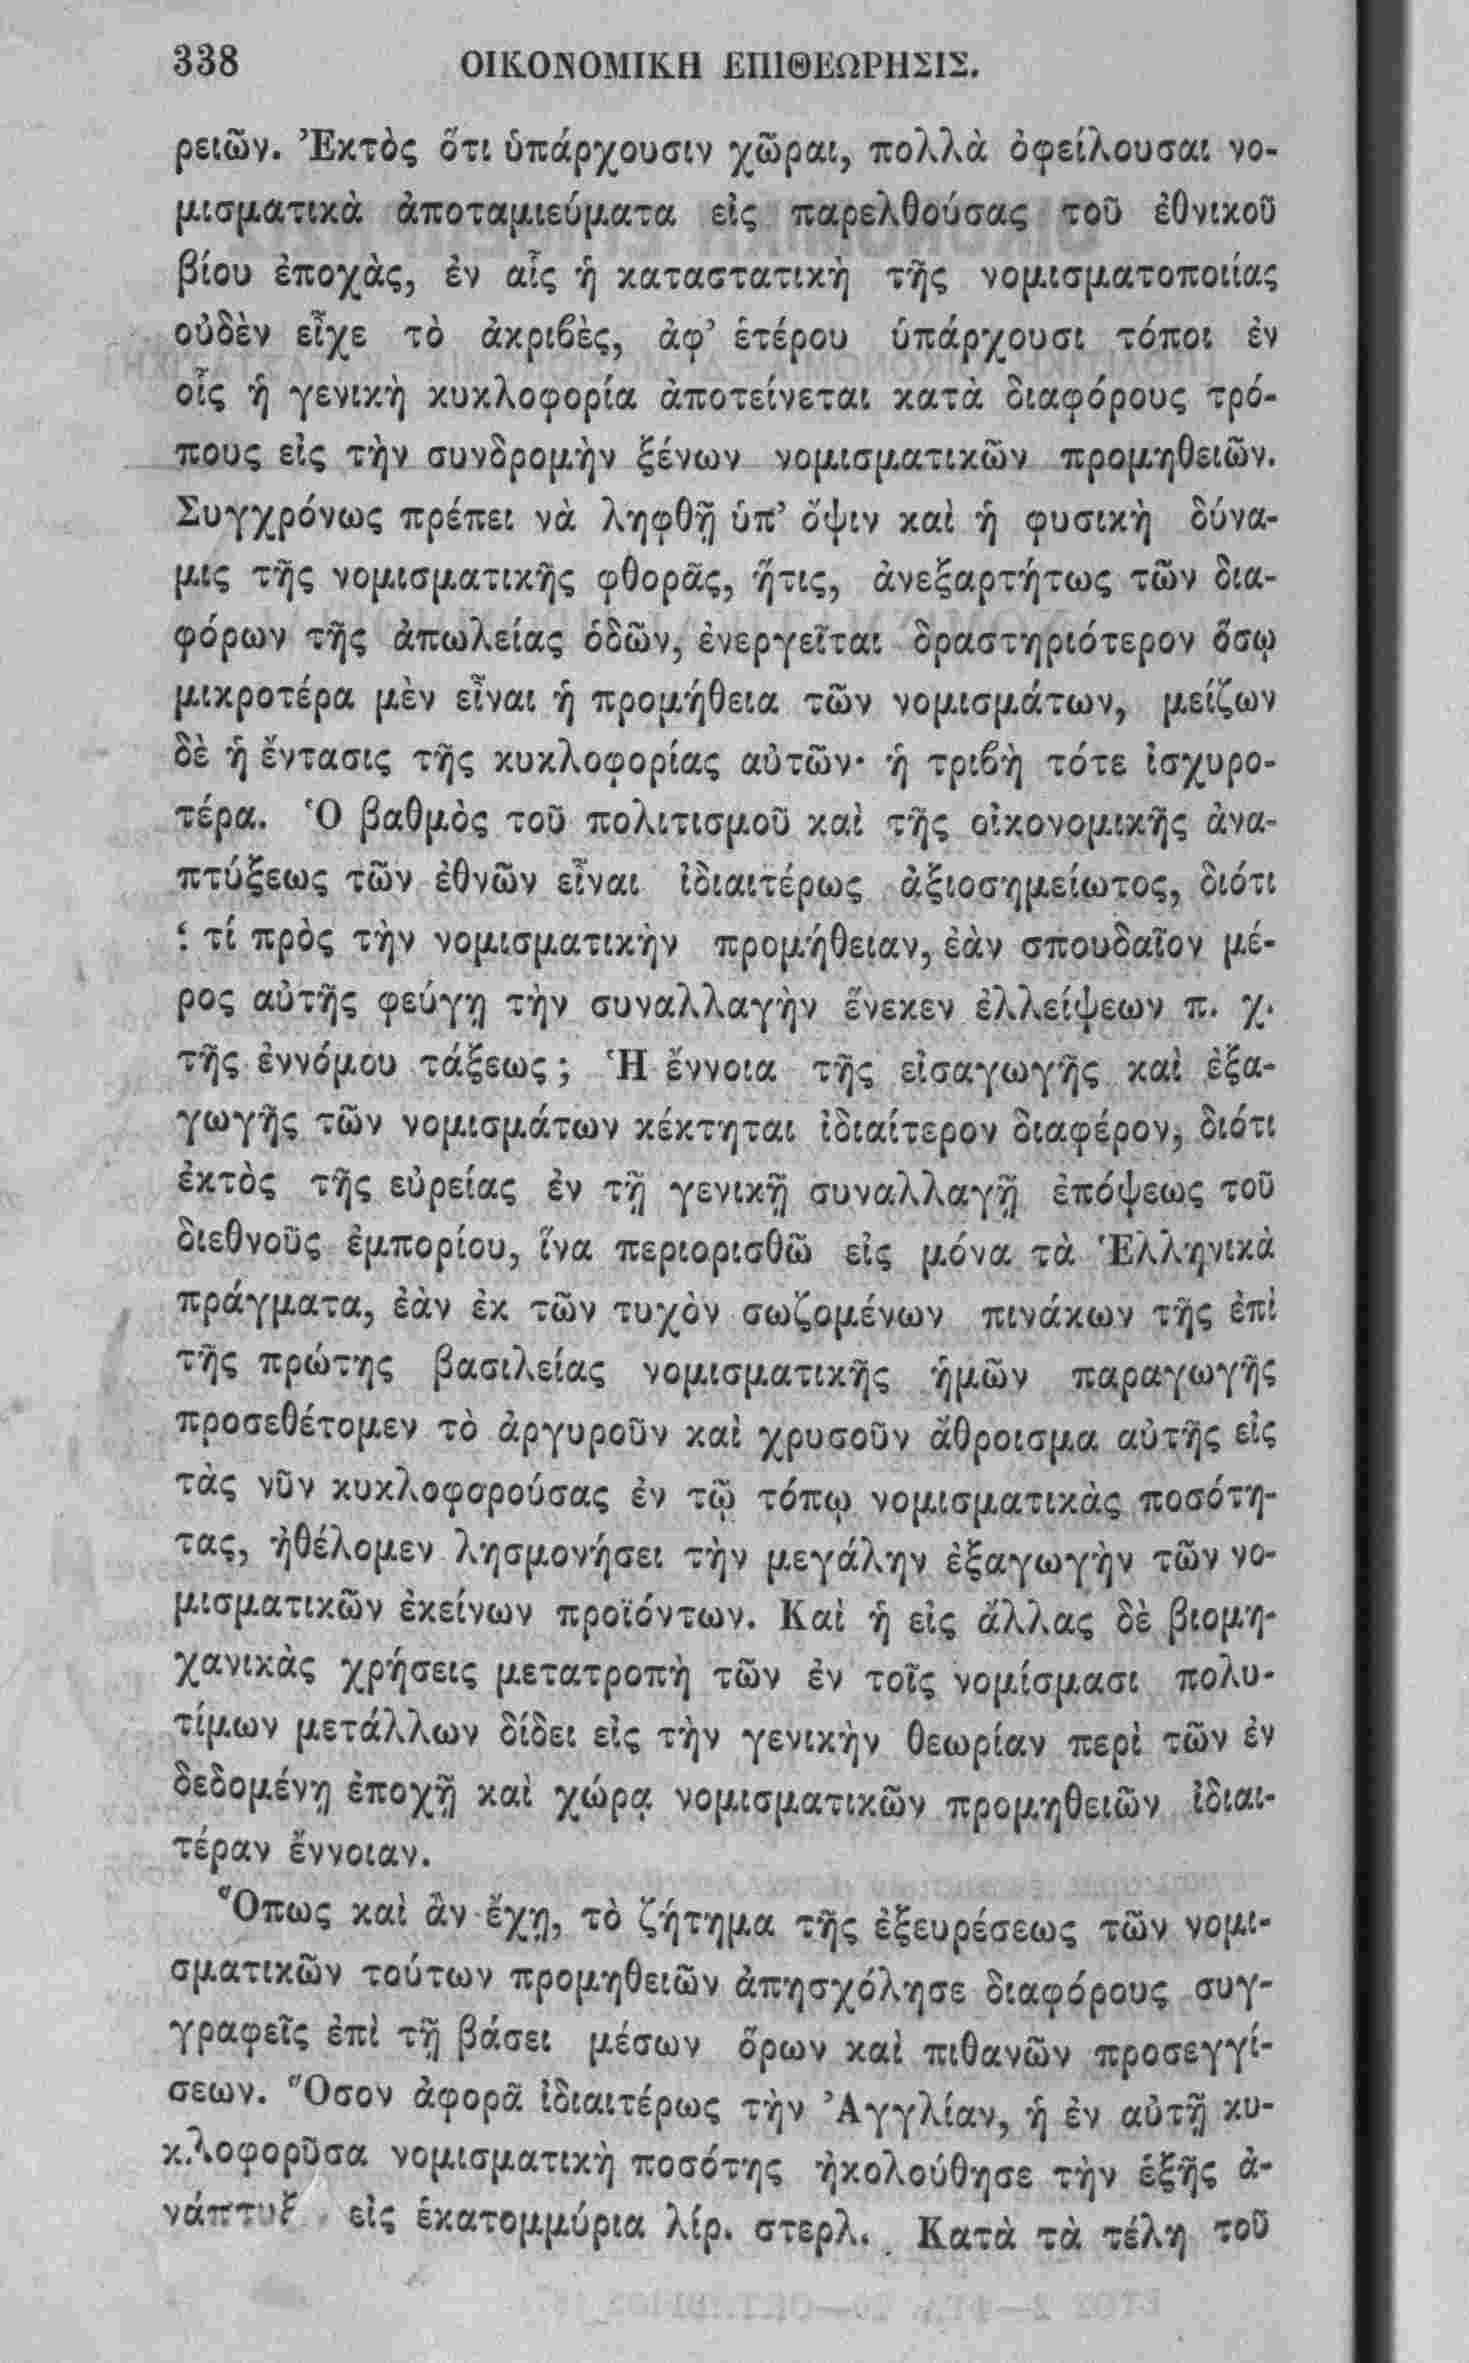 338 ΟΙΚΟΝΟΜΙΚΗ ΕΠΙΘΕΩΡΗΣΙΣ.
ρειῶν. Ἐκτὸς ὅτι ὑπάρχουσιν χῶραι, πολλὰ ὀφείλουσαι νο-
μισματικὰ ἀποταμιεύματα εἰς παρελθούσας τοῦ ἐθνικοῦ
βίου ἐποχὰς, ἐν αἷς ἡ καταστατικὴ τῆς νομισματοποιίας
οὐδὲν εἶχε τὸ ἀκριβὲς, ἀφ’ ἑτέρου ὑπάρχουσι τόποι ἐν
οἷς ἡ γενικὴ κυκλοφορία ἀποτείνεται κατὰ διαφόρους τρό-
πους εἰς τὴν συνδρομὴν ξένων νομισματικῶν προμηθειῶν.
Συγχρόνως πρέπει νὰ ληφθῇ ὑπ’ ὄψιν καὶ ἡ φυσικὴ δύνα-
μις τῆς νομισματικῆς φθορᾶς, ἥτις, ἀνεξαρτήτως τῶν δια-
φόρων τῆς ἀπωλείας ὁδῶν, ἐνεργεῖται δραστηριότερον ὅσῳ
μικροτέρα μὲν εἶναι ἡ προμήθεια τῶν νομισμάτων, μείζων
δὲ ἡ ἔντασις τῆς κυκλοφορίας αὐτῶν· ἡ τριβὴ τότε ἰσχυρο-
τέρα. Ὁ βαθμὸς τοῦ πολιτισμοῦ καὶ τῆς οἰκονομικῆς ἀνα-
πτύξεως τῶν ἐθνῶν εἶναι ἰδιαιτέρως ἀξιοσημείωτος, διότι
τί πρὸς τὴν νομισματικὴν προμήθειαν, ἐὰν σπουδαῖον μέ-
ρος αὐτῆς φεύγῃ τὴν συναλλαγὴν ἕνεκεν ἐλλείψεων π. χ.
τῆς ἐννόμου τάξεως; Ἡ ἔννοια τῆς εἰσαγωγῆς καὶ ἐξα-
γωγῆς τῶν νομισμάτων κέκτηται ἰδιαίτερον διαφέρον, διότι
ἐκτὸς τῆς εὐρείας ἐν τῇ γενικῇ συναλλαγῇ ἐπόψεως τοῦ
διεθνοῦς ἐμπορίου, ἵνα περιορισθῶ εἰς μόνα τὰ Ἑλληνικὰ
πράγματα, ἐὰν ἐκ τῶν τυχὸν σωζομένων πινάκων τῆς ἐπὶ
τῆς πρώτης βασιλείας νομισματικῆς ἡμῶν παραγωγῆς
προσεθέτομεν τὸ ἀργυροῦν καὶ χρυσοῦν ἄθροισμα αὐτῆς εἰς
τὰς νῦν κυκλοφορούσας ἐν τῷ τόπῳ νομισματικὰς ποσότη-
τας, ἠθέλομεν λησμονήσει τὴν μεγάλην ἐξαγωγὴν τῶν νο-
μισματικῶν ἐκείνων προϊόντων. Καὶ ἡ εἰς ἄλλας δὲ βιομη-
χανικὰς χρήσεις μετατροπὴ τῶν ἐν τοῖς νομίσμασι πολυ-
τίμων μετάλλων δίδει εἰς τὴν γενικὴν θεωρίαν περὶ τῶν ἐν
δεδομένῃ ἐποχῇ καὶ χώρᾳ νομισματικῶν προμηθειῶν ἰδιαι-
τέραν ἔννοιαν.
Ὅπως καὶ ἂν ἔχῃ, τὸ ζήτημα τῆς ἐξευρέσεως τῶν νομι-
σματικῶν τούτων προμηθειῶν ἀπησχόλησε διαφόρους συγ-
γραφεῖς ἐπὶ τῇ βάσει μέσων ὅρων καὶ πιθανῶν προσεγγί-
σεων. Ὅσον ἀφορᾶ ἰδιαιτέρως τὴν Ἀγγλίαν, ἡ ἐν αὐτῇ κυ-
κλοφοροῦσα νομισματικὴ ποσότης ἠκολούθησε τὴν ἑξῆς ἀ-
εἰς ἑκατομμύρια λίρ. στερλ. Κατὰ τὰ τέλη τοῦ